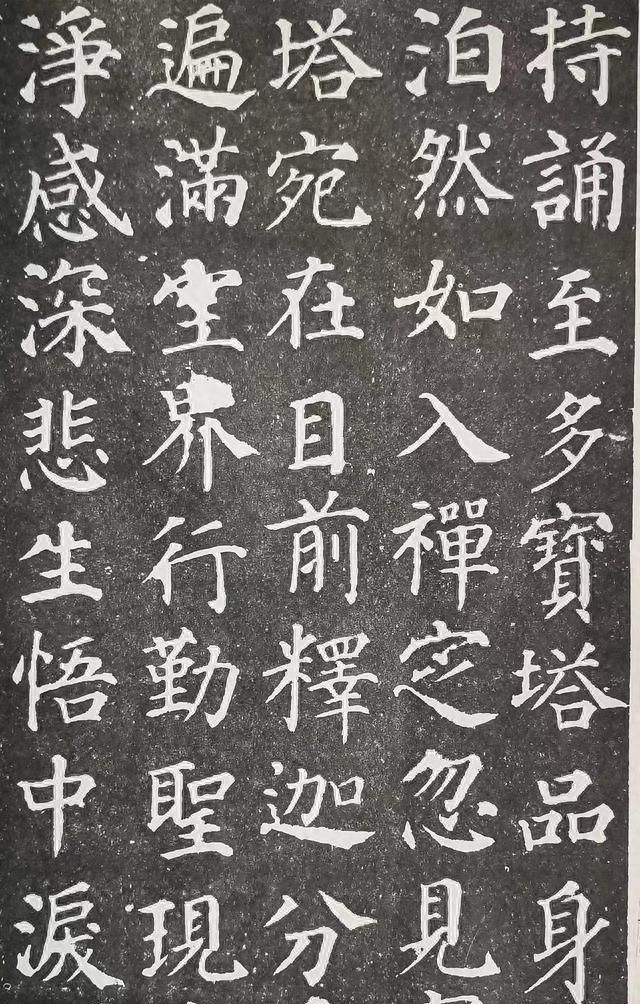 持誦至多寶塔品身
泊然如入禪定忽見
塔宛在目前釋迦分
遍滿空界行勤聖現
淨感深悲生悟中淚